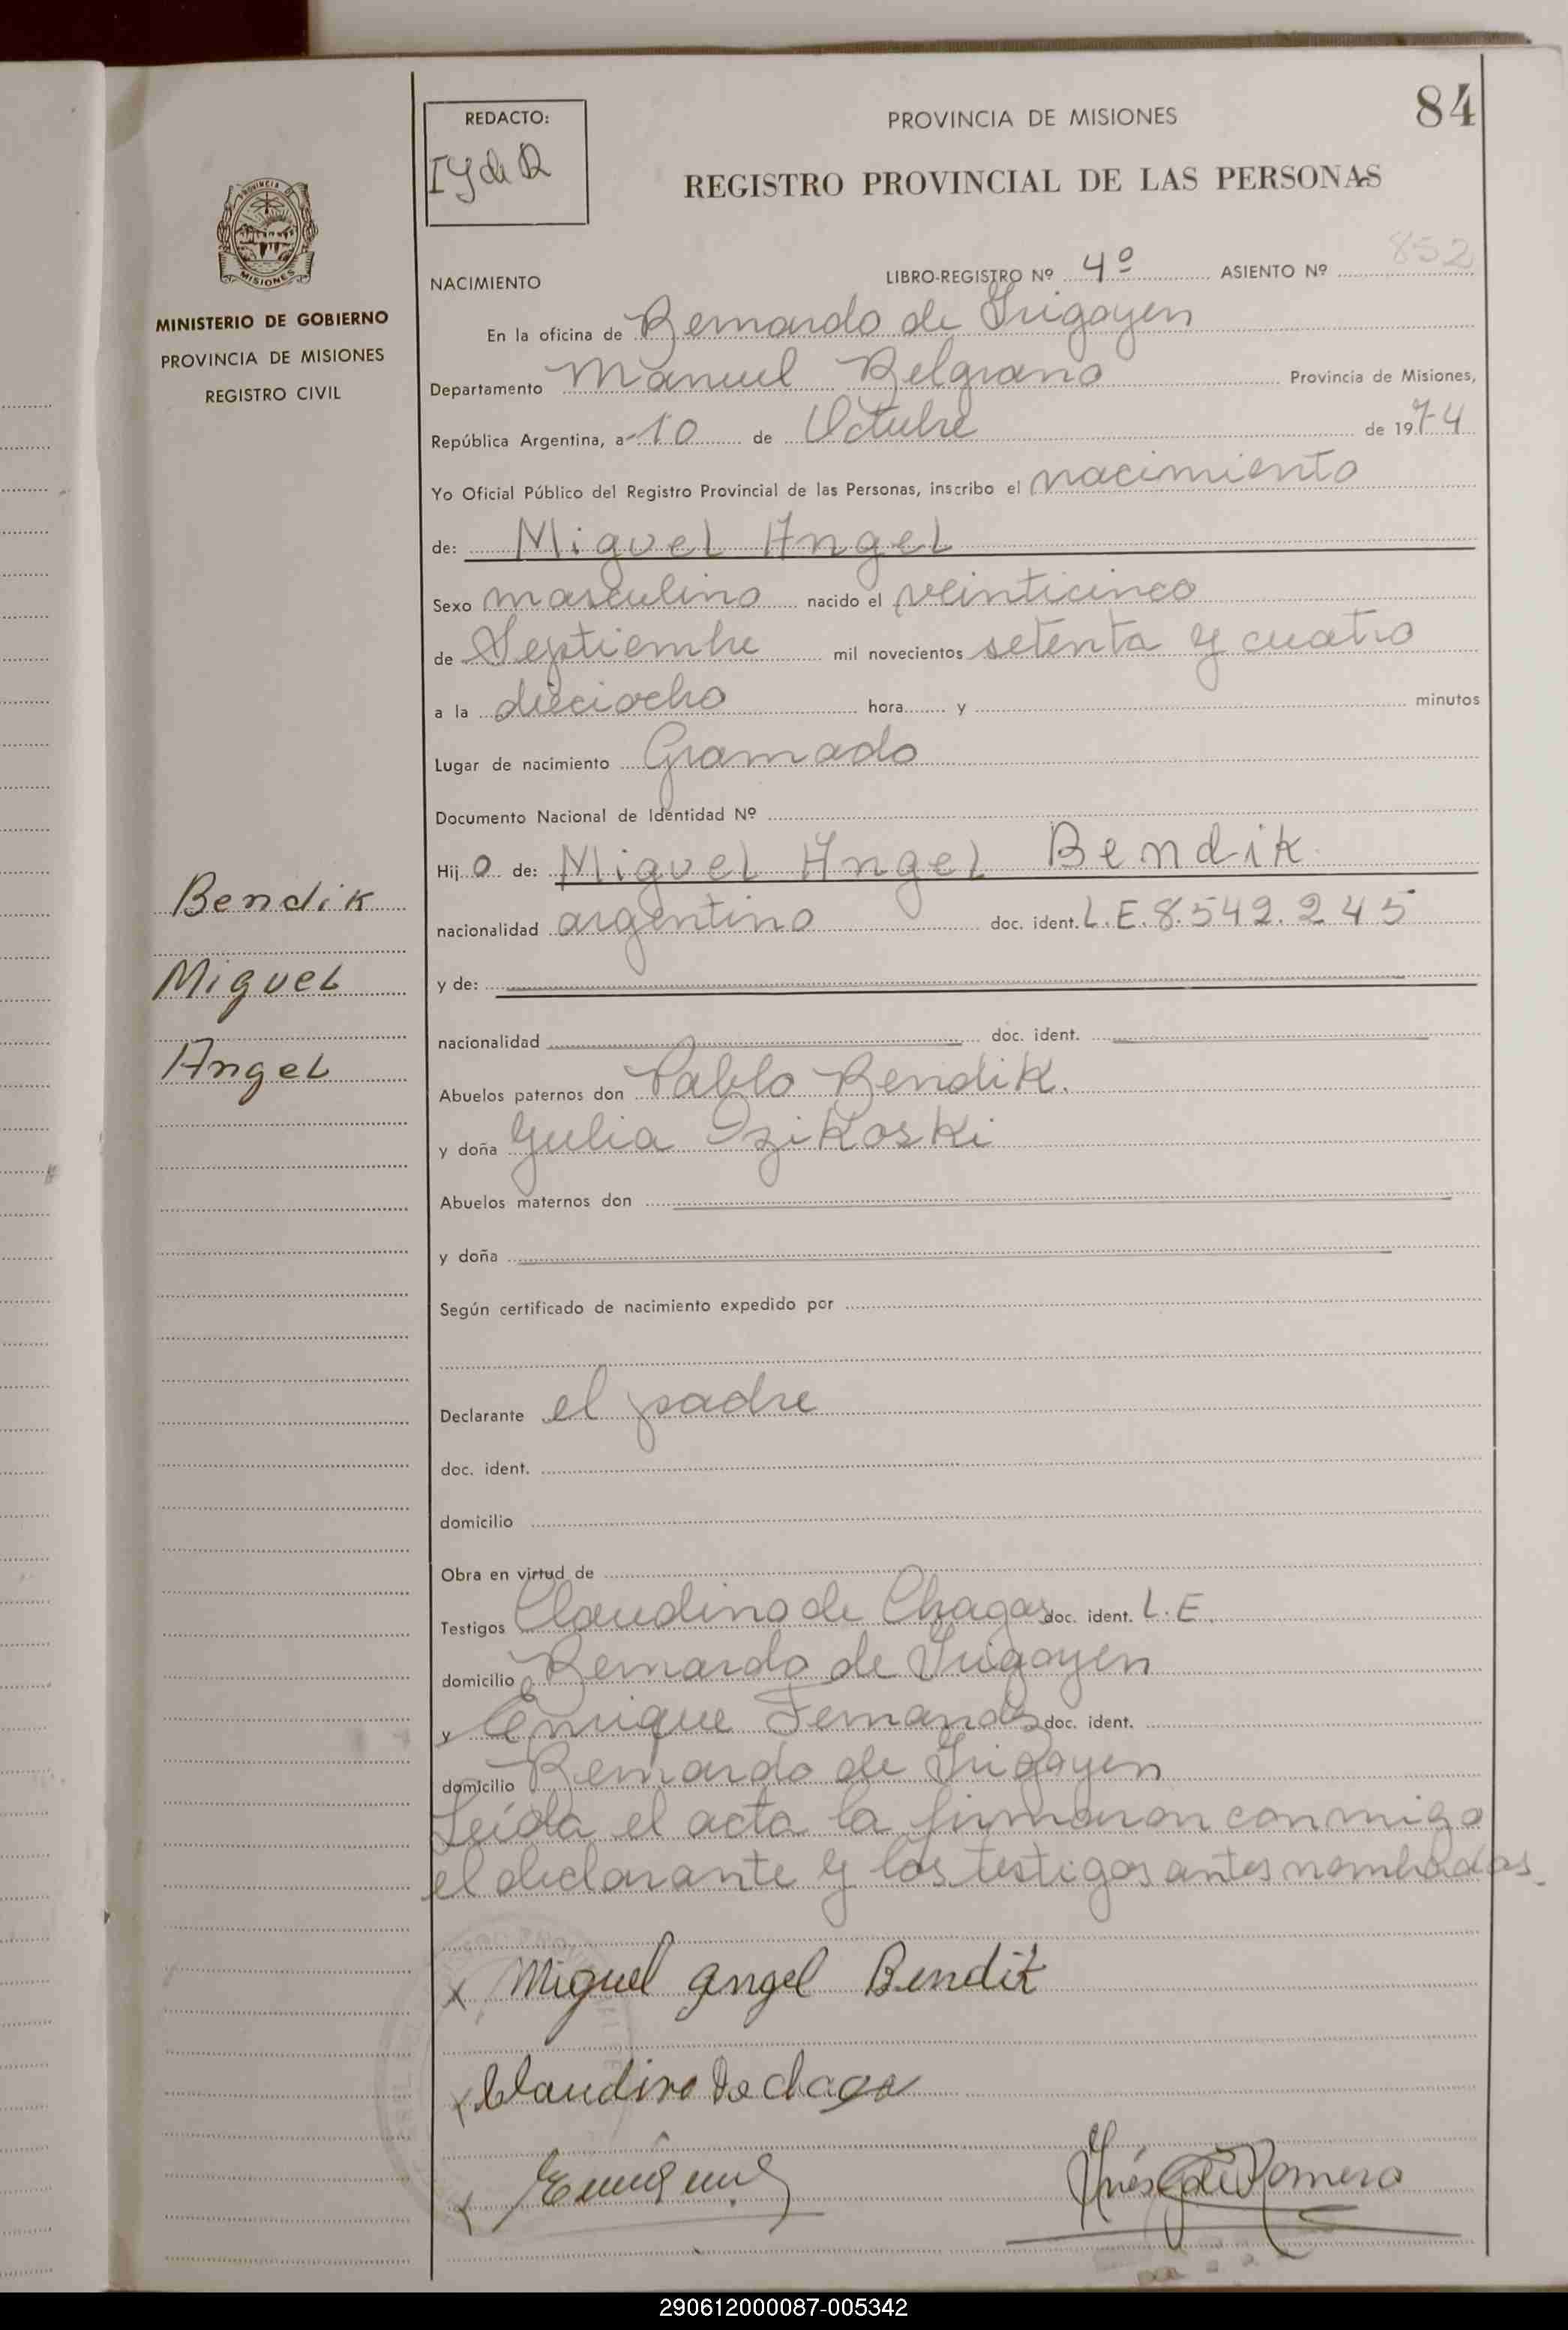 84
REDACTO:
I y de R
PROVINCIA DE MISIONES
REGISTRO PROVINCIAL DE LAS PERSONAS
PROVINCIA DE
MISIONES
MINISTERIO DE GOBIERNO
PROVINCIA DE MISIONES
REGISTRO CIVIL
NACIMIENTO LIBRO-REGISTRO Nº 4º ASIENTO Nº 852
En la oficina de Bernardo de Irigoyen
Departamento Manuel Belgrano Provincia de Misiones,
República Argentina, a 10 de Octubre de 1974
Yo Oficial Público del Registro Provincial de las Personas, inscribo el nacimiento
de: Miguel Angel
Sexo masculino nacido el veinticinco
de Septiembre mil novecientos setenta y cuatro
a la dieciocho hora y minutos
Lugar de nacimiento Gramado
Documento Nacional de Identidad Nº
Hijo de: Miguel Angel Bendik
nacionalidad argentino doc. ident. L.E. 8.542.245
y de:
nacionalidad doc. ident.
Abuelos paternos don Pablo Bendik.
y doña Julia Izikoski
Abuelos maternos don
y doña
Según certificado de nacimiento expedido por
Declarante el padre
doc. ident.
domicilio
Obra en virtud de
Testigos Claudino de Chagas doc. ident. L.E.
domicilio Bernardo de Irigoyen
y Enrique Fernandes doc. ident.
domicilio Bernardo de Irigoyen
Leída el acta la firmaron conmigo
el declarante y los testigos antes nombrados.
Bendik
Miguel
Angel
x Miguel Angel Bendik
x Claudino de chaga
x
Inés de Romero
290612000087-005342